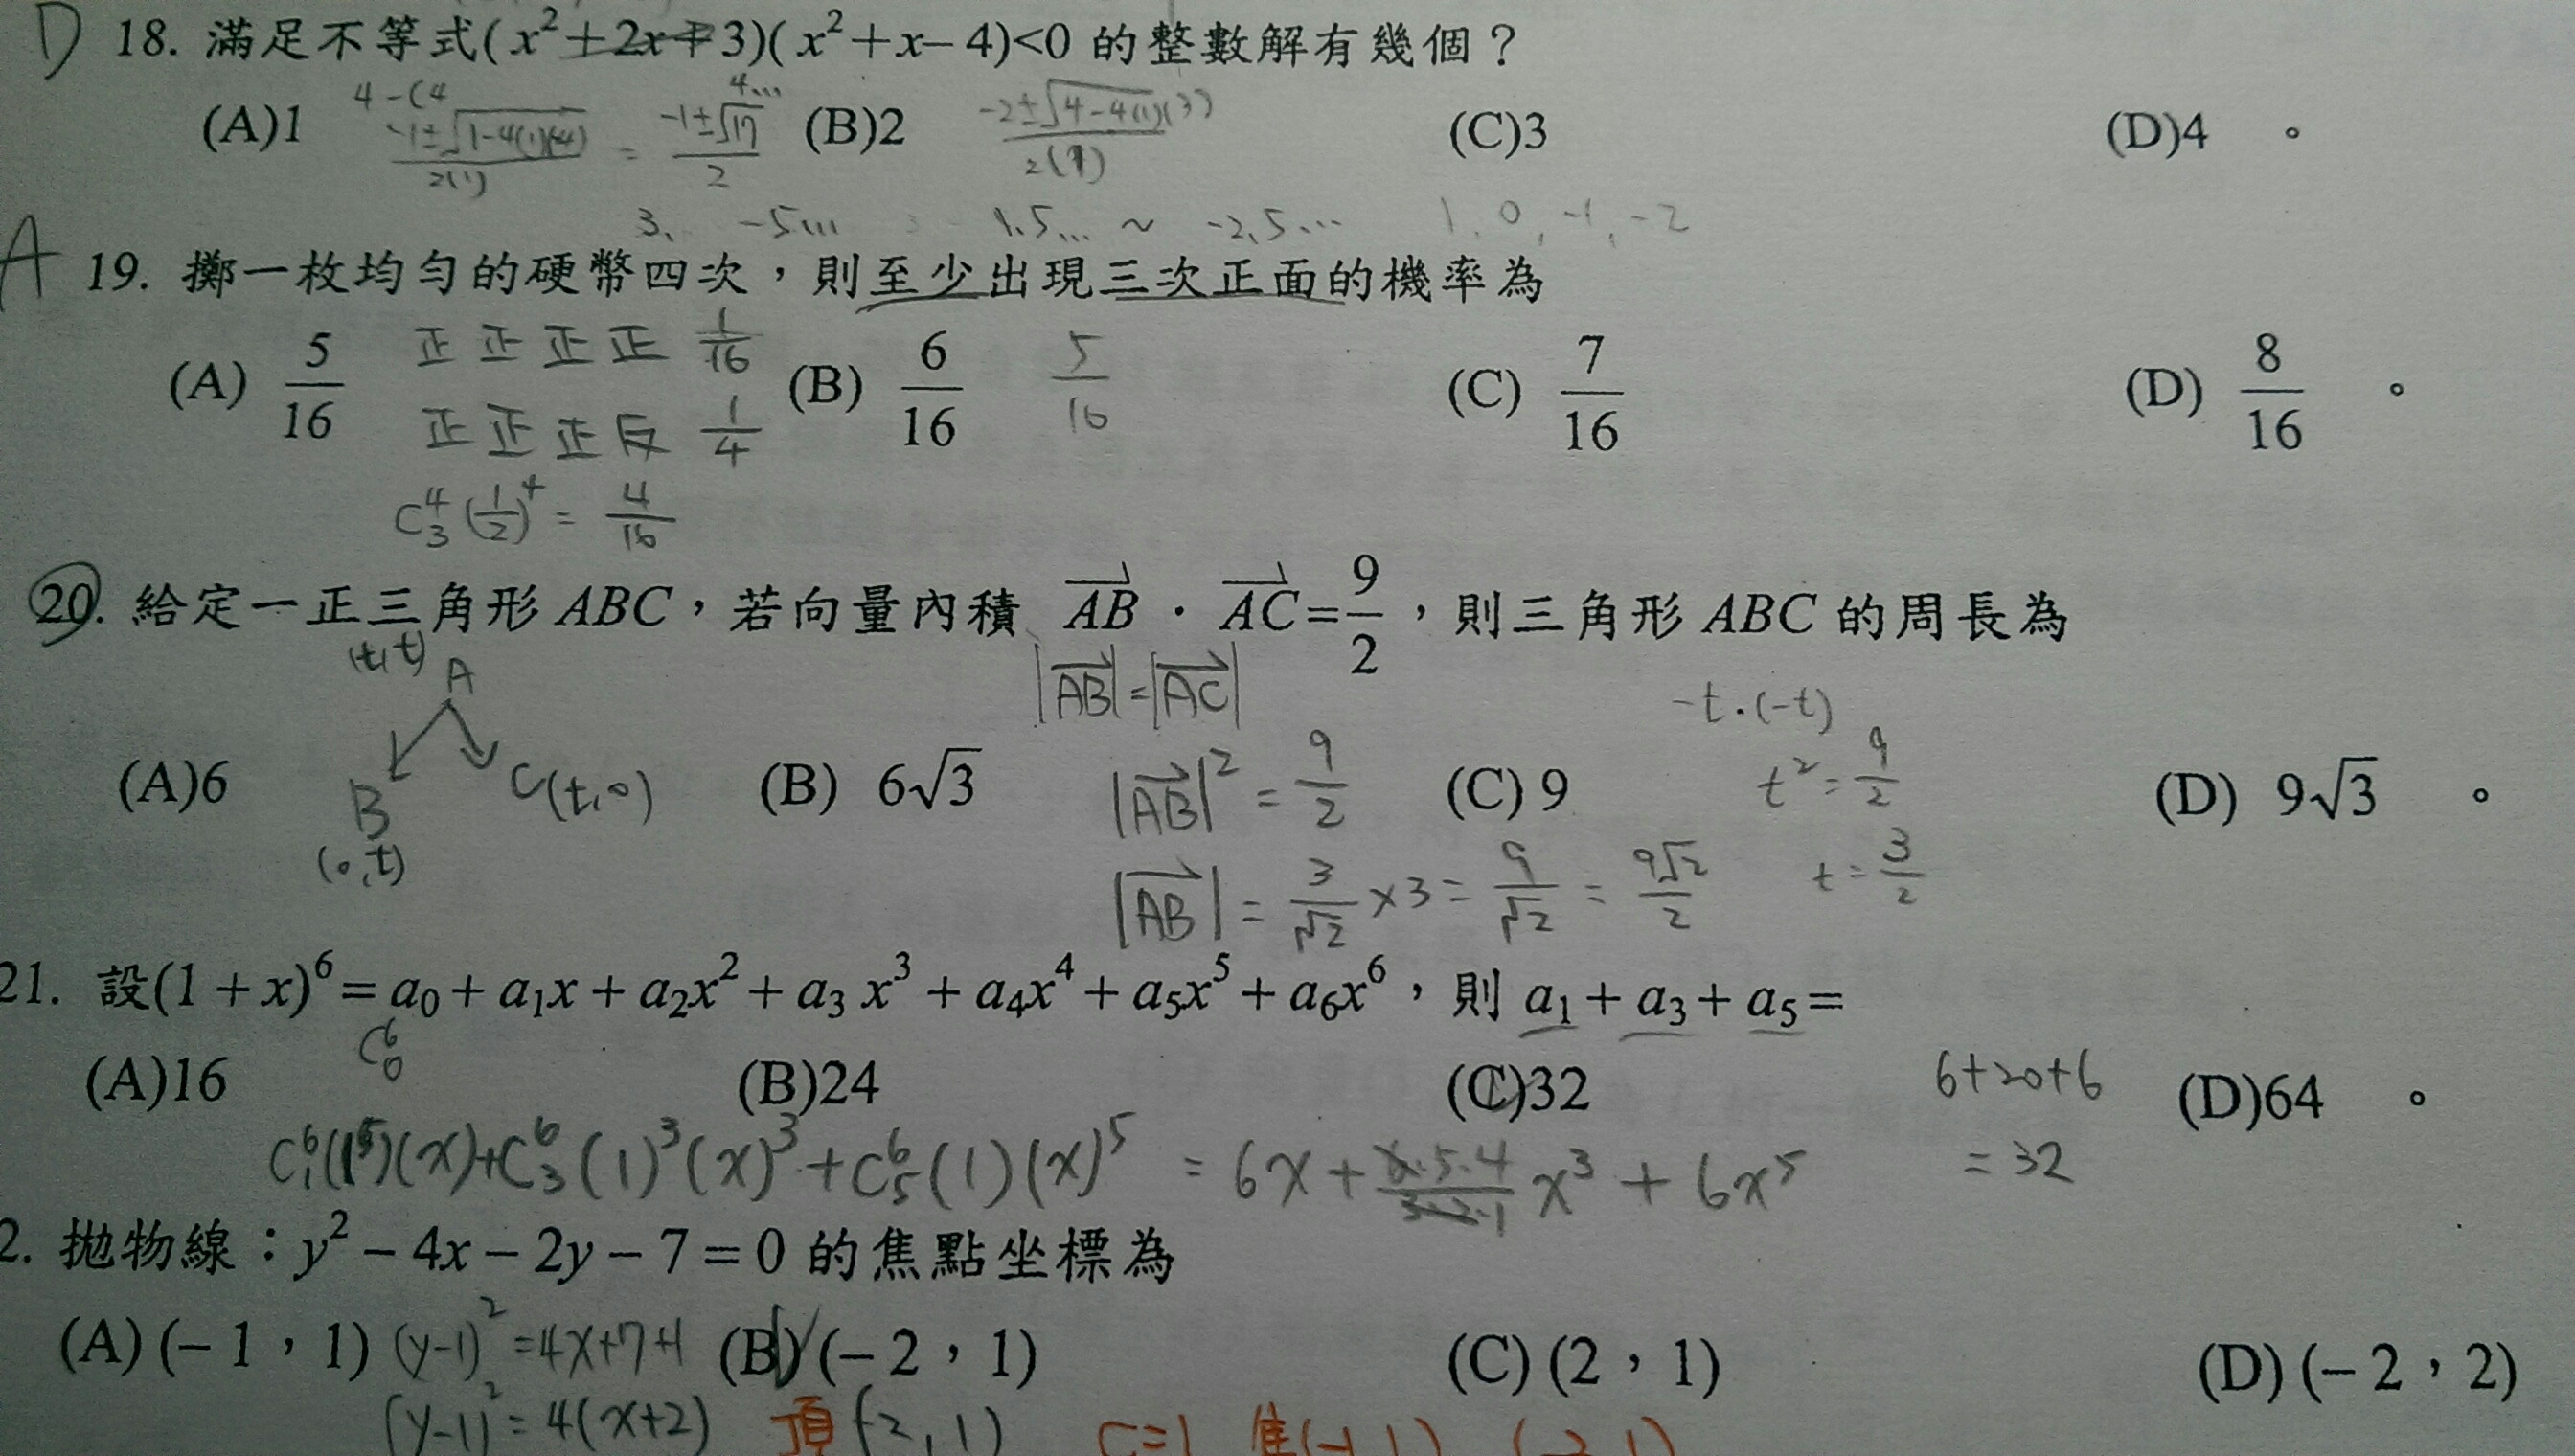 D 18. 滿足不等式(x²+2x+3)(x²+x–4)<0 的整數解有幾個？
4-(4
(A)1 (-1±√(1-4(1)(-4)))/2(1) = (-1±√17)/2 4... (B)2 (-2±√(4-4(1)(3)))/2(1) (C)3 (D)4 。
3. -5... 1.5... ~ -2.5... 1, 0, -1, -2
A 19. 擲一枚均勻的硬幣四次，則至少出現三次正面的機率為
(A) 5/16 正正正正 1/16 (B) 6/16 5/16 (C) 7/16 (D) 8/16 。
正正正反 1/4
C⁴₃(1/2)⁴ = 4/16
20. 給定一正三角形 ABC，若向量內積 AB · AC=9/2，則三角形 ABC 的周長為
(t,t) A |AB|=|AC| -t·(-t)
(A)6 B (0,t) C(t,0) (B) 6√3 |AB|² = 9/2 (C) 9 t² = 9/2 (D) 9√3 。
|AB| = 3/√2 ×3 = 9/√2 = 9√2/2 t = 3/2
21. 設(1 + x)⁶ = a₀ + a₁x + a₂x² + a₃x³ + a₄x⁴ + a₅x⁵ + a₆x⁶，則 a₁ + a₃ + a₅ =
C⁶₀
(A)16 (B)24 (C)32 6+20+6 (D)64 。
C⁶₁(1⁵)(x)+C⁶₃(1)³(x)³+C⁶₅(1)(x)⁵ = 6x + (6·5·4)/(3·2·1) x³ + 6x⁵ = 32
2. 拋物線：y² – 4x – 2y – 7 = 0 的焦點坐標為
(A) (– 1，1) (y-1)² = 4x+7+1 (B) (– 2，1) (C) (2，1) (D) (– 2，2)
(y-1)² = 4(x+2) 頂(-2,1) C=1 焦(-1,1)